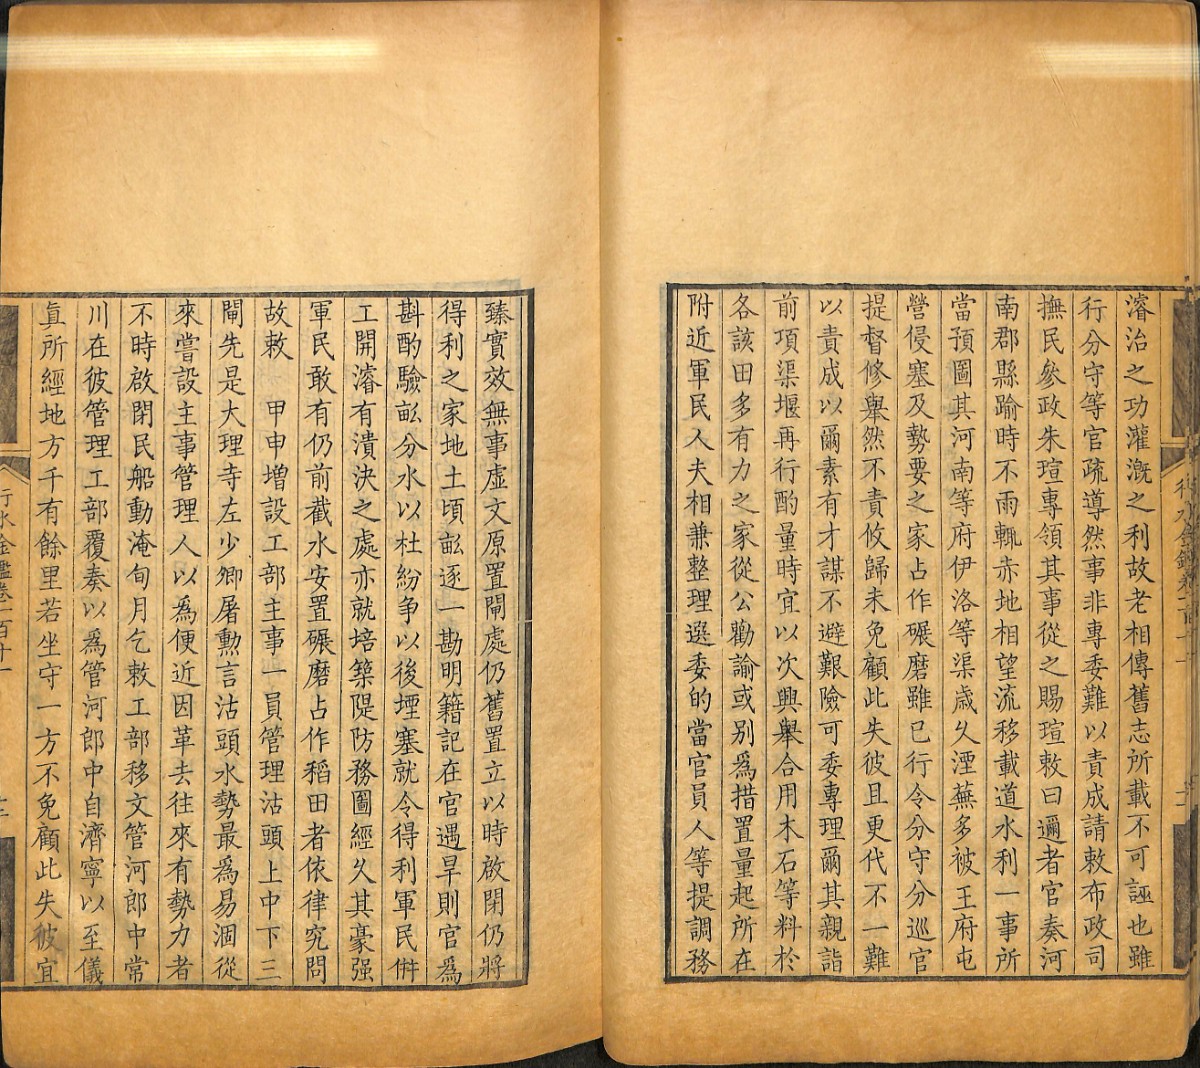 濬治之功灌漑之利故老相傳舊志所載不可誣也雖
行分守等官疏導然事非專委難以責成請敕布政司
撫民參政朱瑄專領其事從之賜瑄敕曰邇者官奏河
南郡縣踰時不雨輒赤地相望流移載道水利一事所
當預圖其河南等府伊洛等渠歳久湮蕪多被王府屯
營侵塞及勢要之家占作碾磨雖已行令分守分巡官
提督修舉然不責攸歸未免顧此失彼且更代不一難
以責成以爾素有才謀不避艱險可委專理爾其親詣
前項渠堰再行酌量時宜以次興舉合用木石等料於
各該田多有力之家從公勸諭或别爲措置量起所在
附近軍民人夫相兼整理選委的當官員人等提調務
臻實效無事虛文原置閘處仍舊置立以時啟閉仍將
得利之家地土頃畝逐一勘明籍記在官遇旱則官爲
斟酌驗畝分水以杜紛争以後堙塞就令得利軍民倂
工開濬有潰決之處亦就培築隄防務圖經久其豪强
軍民敢有仍前截水安置碾磨占作稻田者依律究問
故敕　甲申増設工部主事一員管理沽頭上中下三
閘先是大理寺左少卿屠勲言沽頭水勢最爲易涸從
來嘗設主事管理人以爲便近因革去往來有勢力者
不時啟閉民船動淹旬月乞敕工部移文管河郎中常
川在彼管理工部覆奏以爲管河郎中自濟寧以至儀
眞所經地方千有餘里若坐守一方不免顧此失彼宜
行水金鑑卷一百十一